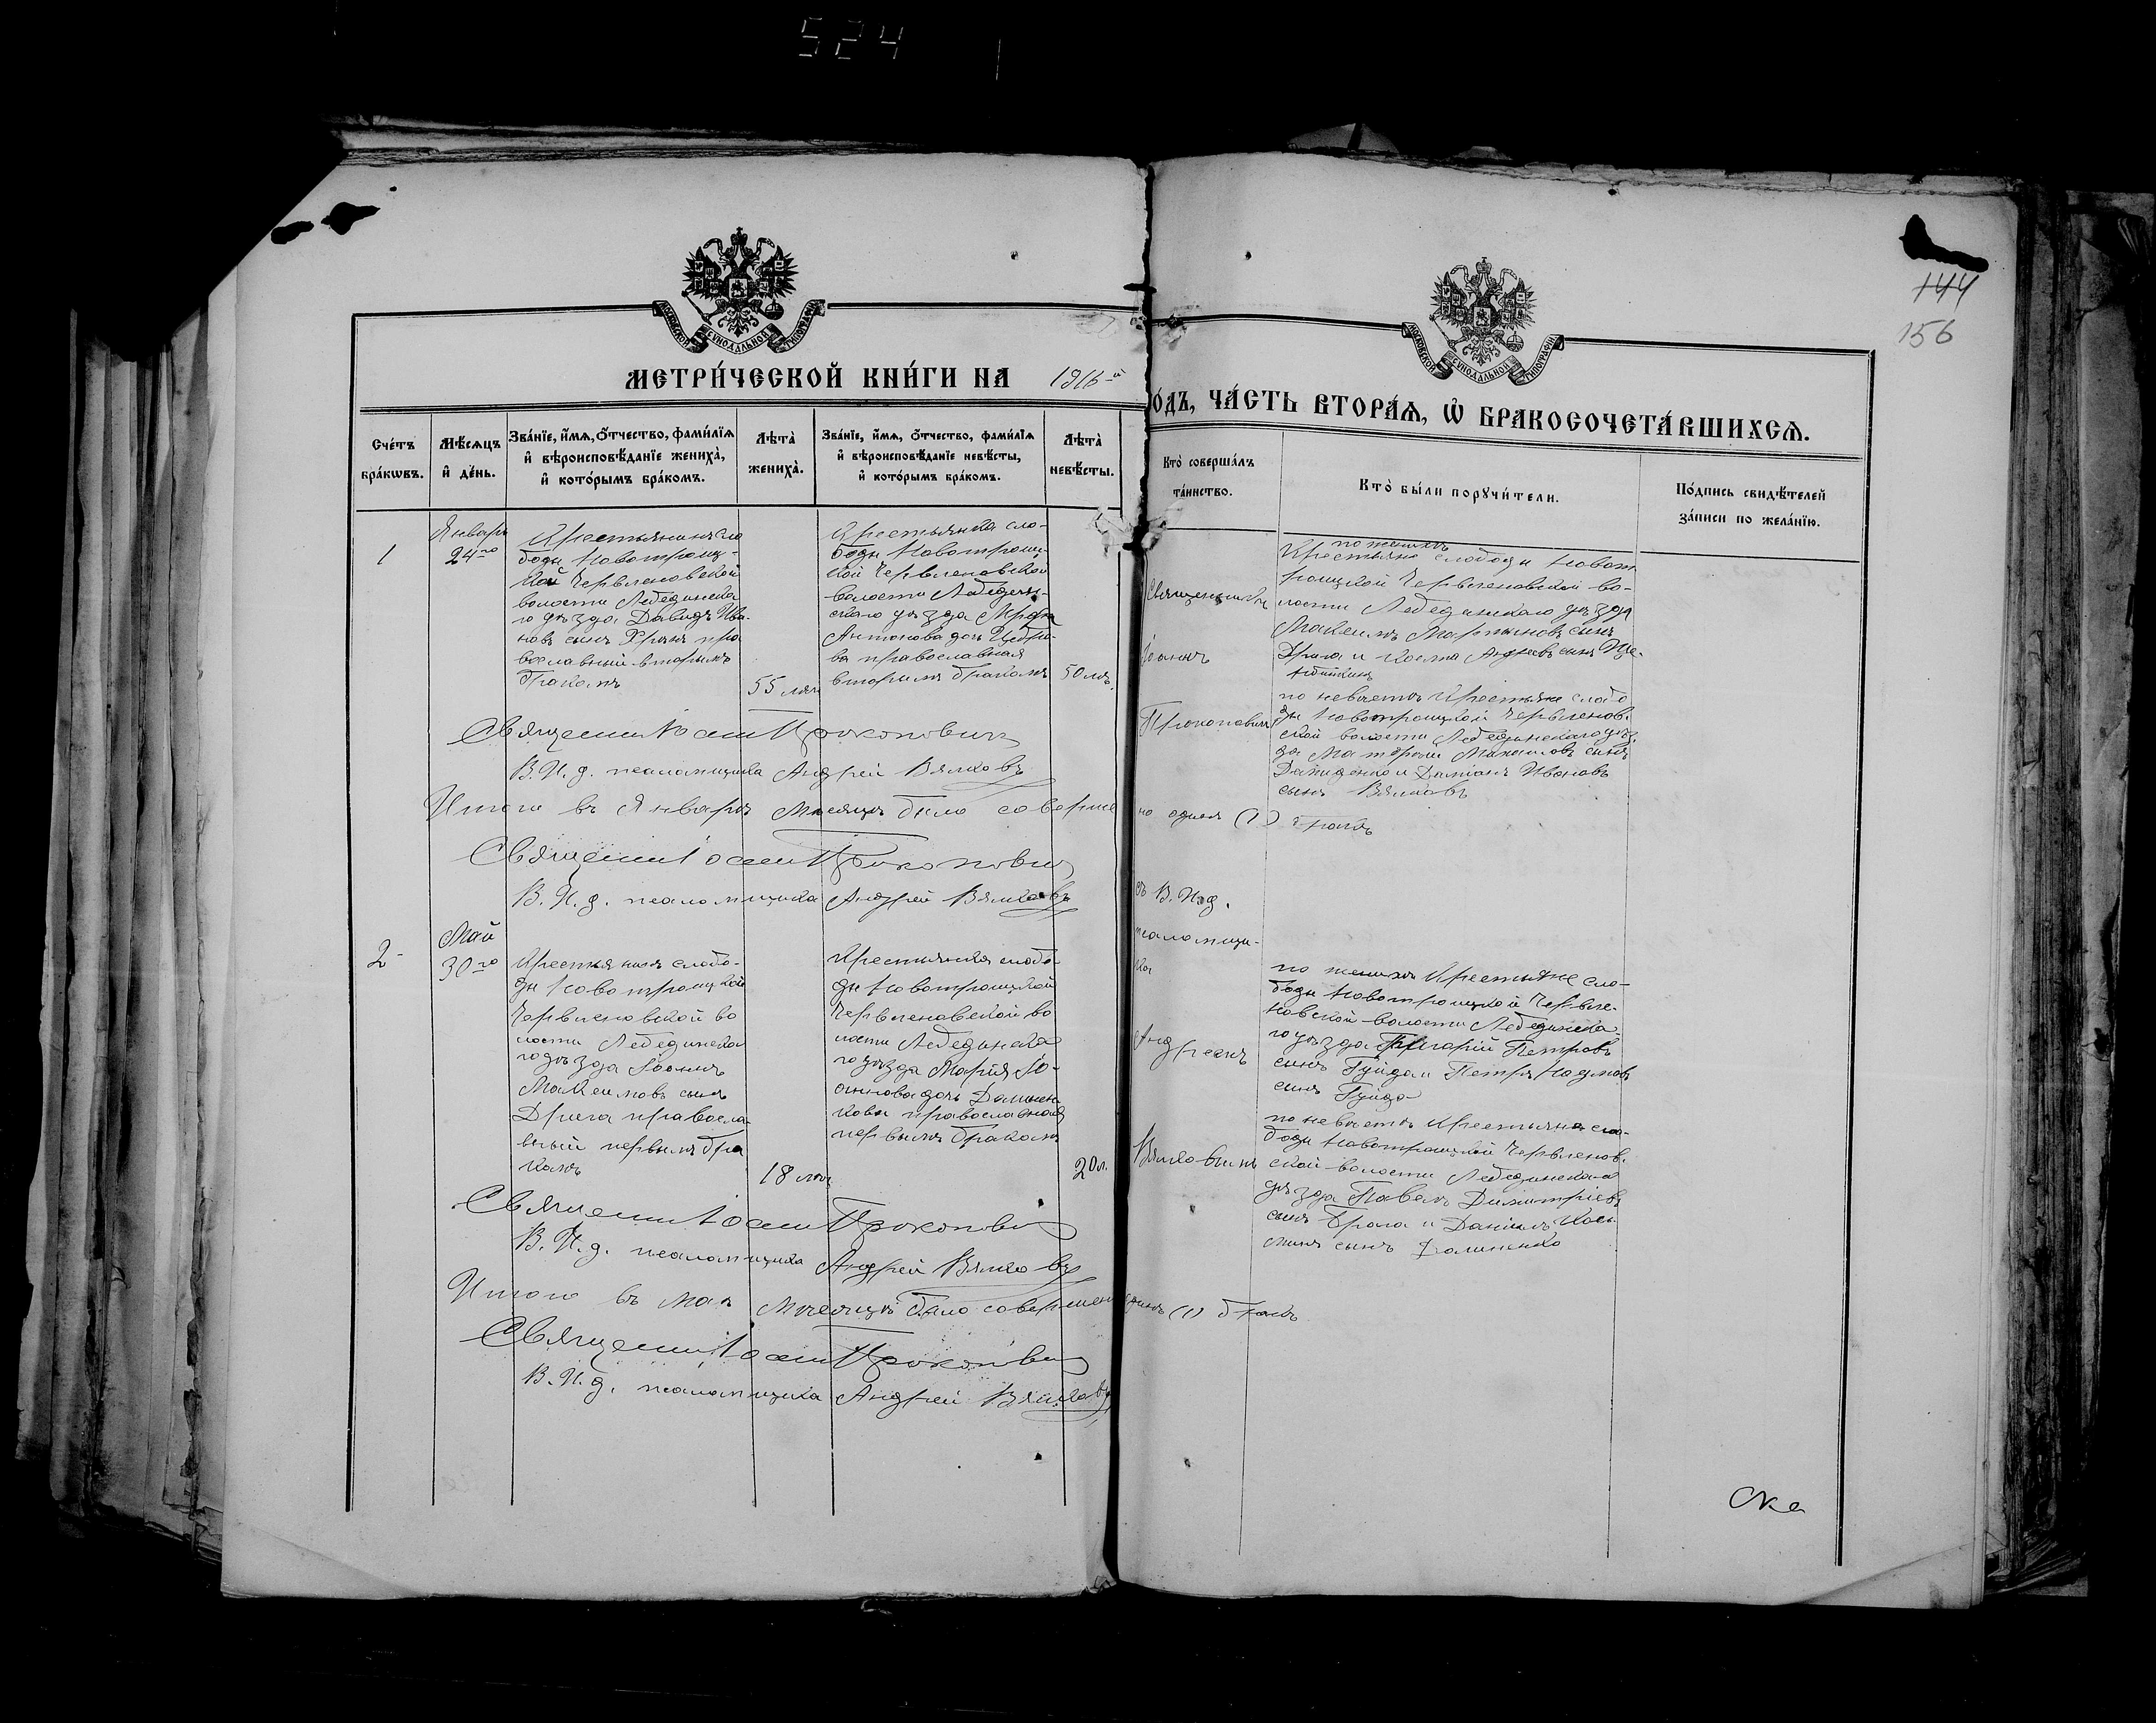 524
144
156
МОСКОВСКОЙ СѴНОДАЛЬНОЙ ТИПОГРАФІИ
МОСКОВСКОЙ СѴНОДАЛЬНОЙ ТИПОГРАФІИ
МЕТРИ́ЧЕСКОЙ КНИ́ГИ НА 1916-й
ÓДЪ, ЧА́СТЬ ВТОРА́Ѧ, Ѡ҆ БРАКОСОЧЕТА́ВШИХСѦ.
Сче́тъ бра́кѡвъ.
Мѣ́сѧцъ и҆ де́нь.
Зва́нїе, и҆́мѧ, ѻ҆́тчество, фами́лїѧ и҆ вѣроисповѣ́данїе жениха̀, и҆ кото́рымъ бра́комъ.
Лѣ́та̀ жениха̀.
Зва́нїе, и҆́мѧ, ѻ҆́тчество, фами́лїѧ и҆ вѣроисповѣ́данїе невѣ́сты, и҆ кото́рымъ бра́комъ.
Лѣ́та̀ невѣ́сты.
Кто̀ соверша́лъ та́инство.
Кто̀ бы́ли порꙋчи́тели.
По́дпись свидѣ́телей за́писи по жела́нїю.
1
Январь
24го
Крестьянинъ сло
боды Новотроиц-
кой Червленовской
волости Лебединска
го уѣзда Давидъ Ива-
новъ сынъ пра
вославный вторымъ
бракомъ
55 лѣтъ
Крестьянка сло-
боды Новотроиц-
кой Червленовской
волости Лебедин-
скаго уѣзда
Антонова дочь
ва православная
вторымъ бракомъ
50 лѣт.
Священникъ
Іоаннъ
Прокоповичъ
съ В. И. д.
псаломщи-
ка
Андреемъ
Вялковымъ
по женихѣ
Крестьяне слободы Новот
роицкой Червленовской во-
лости Лебединскаго уѣзда
Максимъ Мартыновъ сынъ
Драга и Косма Андреевъ сынъ
по невѣстѣ Крестьяне слобо
ды Новотроицкой Червленов-
ской волости Лебединскаго уѣз
да Матфей сынъ
Давиденко и Даміанъ Ивановъ
сынъ Вялковъ
Священникъ Іоаннъ Прокоповичъ
В. И. д. псаломщика Андрей Вялковъ
Итого въ Январѣ мѣсяцѣ было соверше но одинъ (1) бракъ
Священникъ Іоаннъ Прокоповичъ
В. И. д. псаломщика Андрей Вялковъ
2
Май
30го
Крестьянинъ слобо-
ды Новотроицкой
Червленовской во
лости Лебединска
го уѣзда Іоаннъ
Максимовъ сынъ
Драга правосла
вный первымъ бра
комъ
18 лѣтъ
Крестьянка слобо
ды Новотроицкой
Червленовской во
лости Лебединска
го уѣзда Марія Іо-
аннова дочь
кова православная
первымъ бракомъ
20 л.
по женихѣ Крестьяне сло-
боды Новотроицкой Червле-
новской волости Лебединска-
го уѣзда Григорій Петровъ
сынъ Гуйда и Петръ Наумовъ
сынъ Гуйда
по невѣстѣ Крестьяне сло-
боды Новотроицкой Червленов-
ской волости Лебединскаго
уѣзда Павелъ Димитріевъ
сынъ Драга и Даніилъ Кось
минъ сынъ
Священникъ Іоаннъ Прокоповичъ
В. И. д. псаломщика Андрей Вялковъ
Итого въ маѣ мѣсяцѣ было совершен одинъ (1) бракъ
Священникъ Іоаннъ Прокоповичъ
В. И. д. псаломщика Андрей Вялковъ